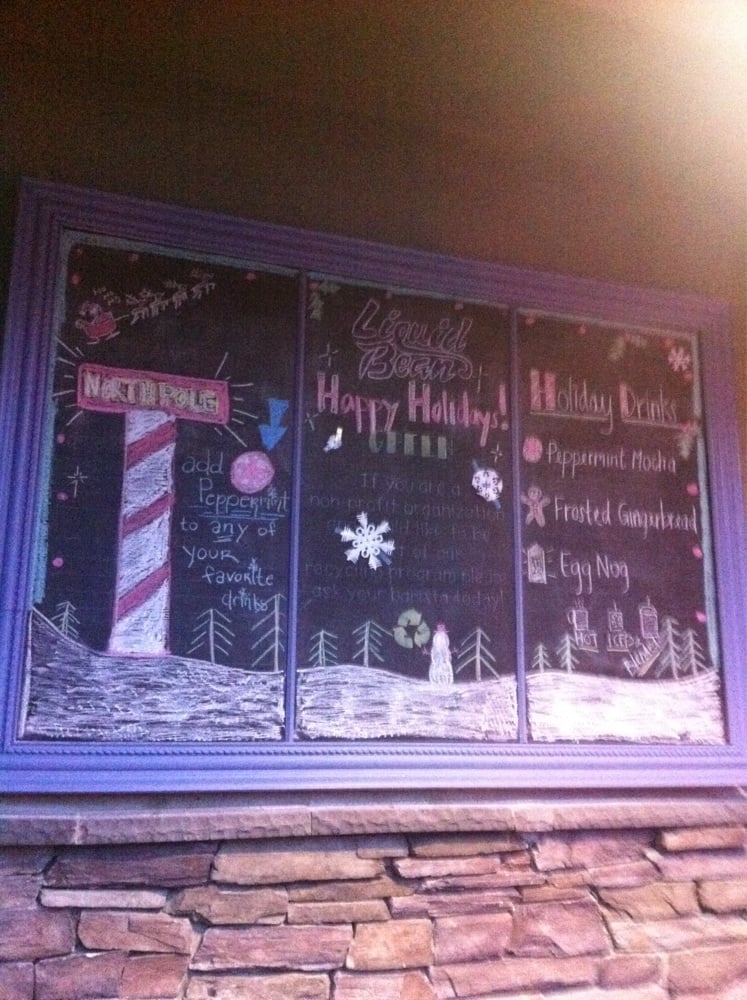 NORTH POLE
add
Peppermint
to any of
your
favorite
drinks
Liquid
Bean
Happy Holidays!
GREEN
If you are a
non-profit organization
like to be
of our
recycling program please
ask your barista today!
Holiday Drinks
Peppermint Mocha
Frosted Gingerbread
Egg Nog
HOT ICED
Blended